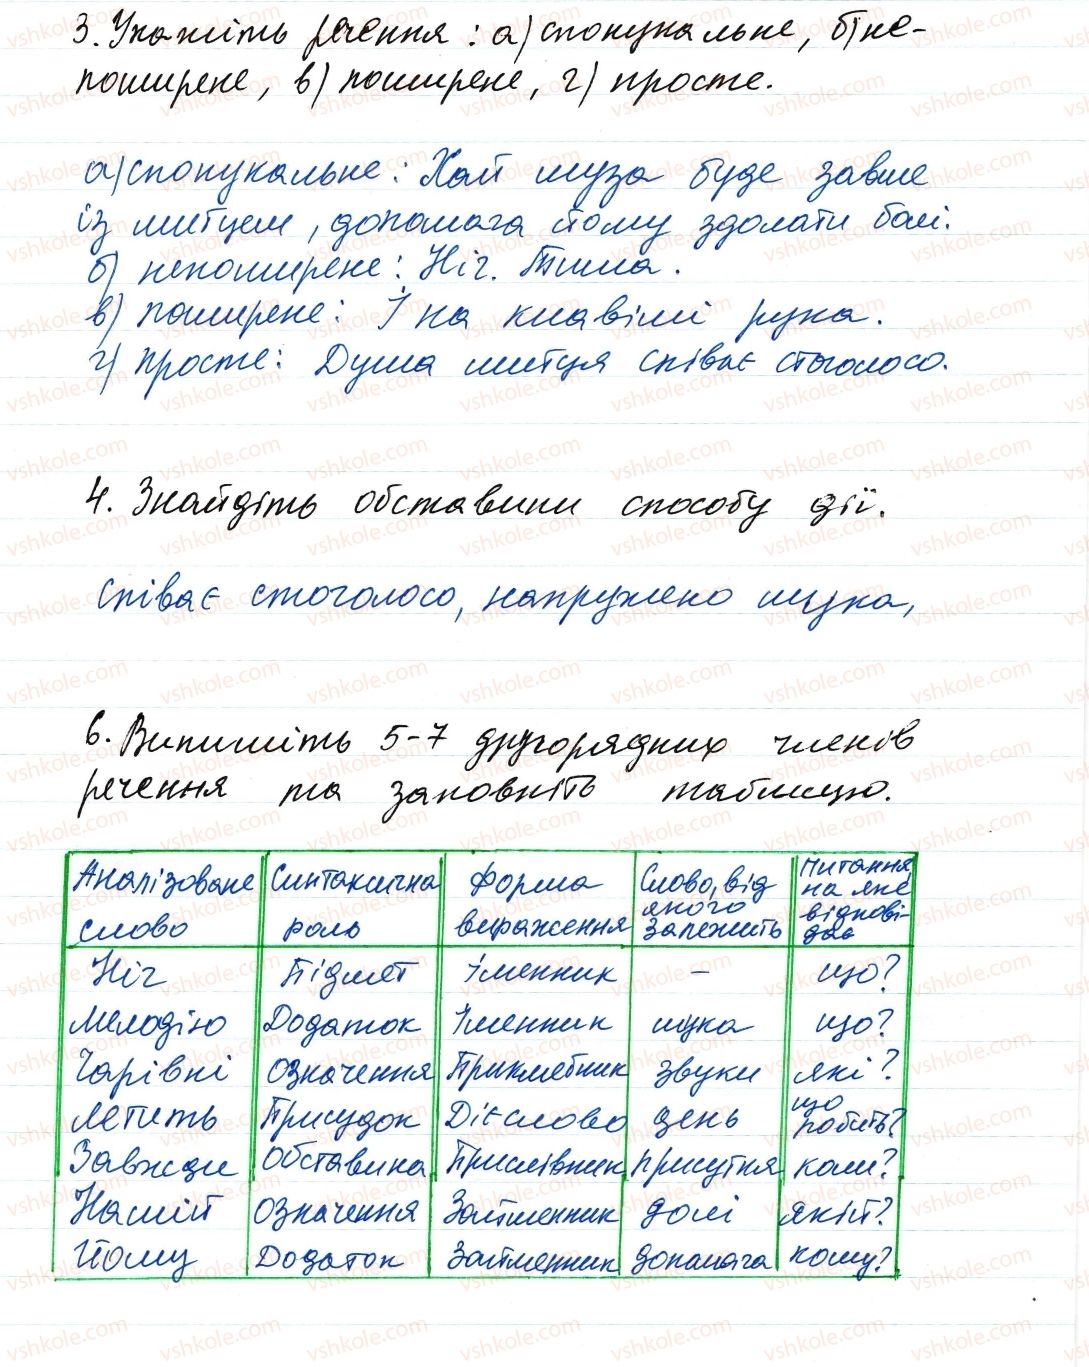 3. Укажіть речення: а) спонукальне, б) не-
поширене, в) поширене, г) просте.
а) спонукальне: Хай муза буде завше
із митцем, допомага йому здолати болі.
б) непоширене: Ніч. Тиша.
в) поширене: І на клавіші рука.
г) просте: Душа митця співає стоголосо.
4. Знайдіть обставини способу дії.
Співає стоголосо, напружено шука,
6. Випишіть 5-7 другорядних членів
речення та заповніть таблицю.
Аналізоване слово | Синтаксична роль | Форма вираження | Слово, від якого залежить | Питання на яке відповідає
Ніч | Підмет | Іменник | – | що?
Мелодію | Додаток | Іменник | шука | що?
Чарівні | Означення | Прикметник | звуки | які?
Летить | Присудок | Дієслово | день | що робить?
Завжди | Обставина | Прислівник | присутня | коли?
Нашій | Означення | Займенник | долі | якій?
Йому | Додаток | Займенник | допомага | кому?
vshkole.com